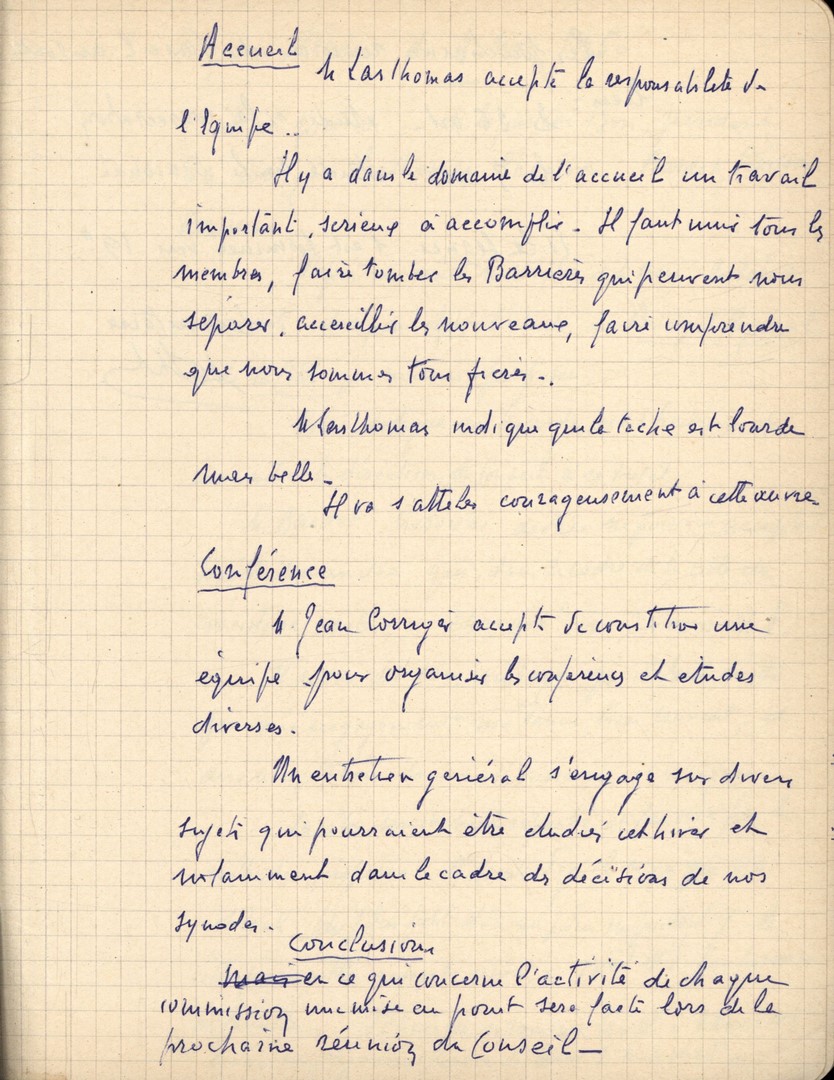 Accueil
M Lasthomas accepte la responsabilité de
l'équipe..
Il y a dans le domaine de l'accueil un travail
important, serieux à accomplir. Il faut unir tous les
membres, faire tomber les Barrières qui peuvent nous
séparer, accueillir les nouveaux, faire comprendre
que nous sommes tous frères..
M Lasthomas indique que la tache est lourde
mais belle.
Il va s'atteler courageusement à cette œuvre
Conférence
M Jean accepte de constituer une
équipe pour organiser les conférences et études
diverses.
Un entretien général s'engage sur divers
sujets qui pourraient être etudiés cet hiver et
notamment dans le cadre des décisions de nos
synodes.
Conclusion
en ce qui concerne l'activité de chaque
commission une mise au point sera faite lors de la
prochaine réunion du Conseil—